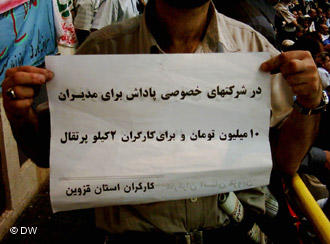 در شرکتهای خصوصی پاداش برای مدیران
۱۰ میلیون تومان و برای کارگران ۲ کیلو پرتقال
کارگران استان قزوین
© DW